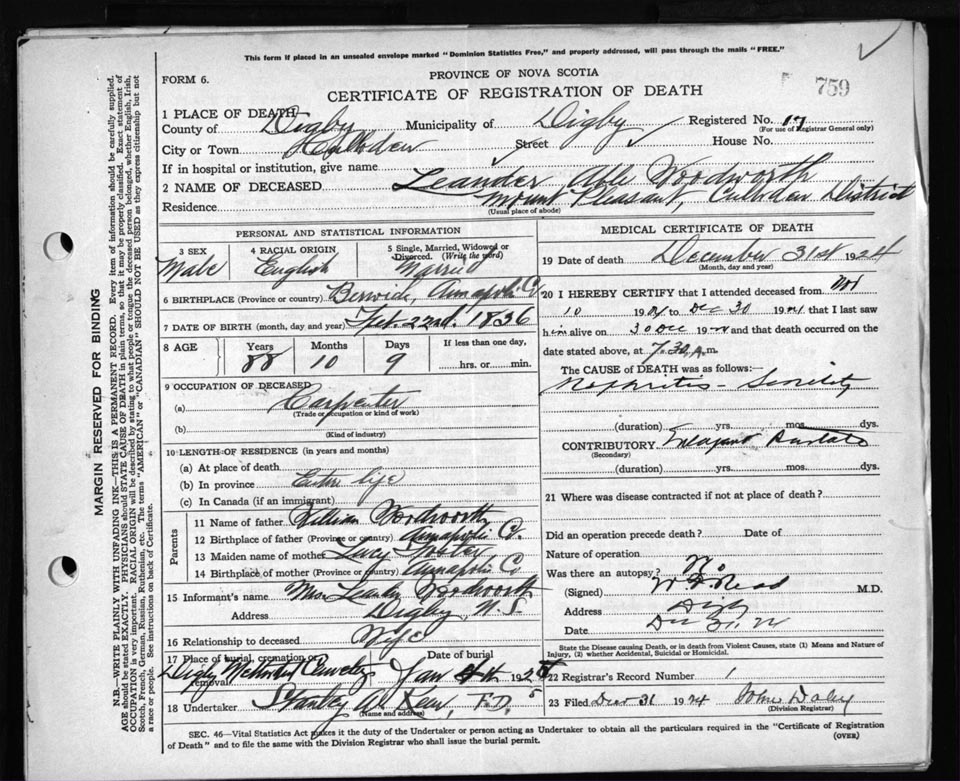 This form if placed in an unsealed envelope marked "Dominion Statistics Free," and properly addressed, will pass through the mails "FREE."
FORM 6.
PROVINCE OF NOVA SCOTIA
759
CERTIFICATE OF REGISTRATION OF DEATH
1 PLACE OF DEATH
County of Digby Municipality of Digby Registered No. 17
(For use of Registrar General only)
City or Town Culloden Street House No.
If in hospital or institution, give name
2 NAME OF DECEASED Leander Able Woodworth
Residence Mount Pleasant, Culloden District
(Usual place of abode)
PERSONAL AND STATISTICAL INFORMATION
3 SEX Male
4 RACIAL ORIGIN English
5 Single, Married, Widowed or Divorced. (Write the word) Married
6 BIRTHPLACE (Province or country) Berwick, Annapolis Co
7 DATE OF BIRTH (month, day and year) Feb. 22nd. 1836
8 AGE Years Months Days If less than one day,
88 10 9 hrs. or min.
9 OCCUPATION OF DECEASED
(a) Carpenter
(Trade or occupation or kind of work)
(b)
(Kind of industry)
10 LENGTH OF RESIDENCE (in years and months)
(a) At place of death
(b) In province Entire life
(c) In Canada (if an immigrant)
Parents
11 Name of father William Woodworth
12 Birthplace of father (Province or country) Annapolis Co.
13 Maiden name of mother Lucy Foster
14 Birthplace of mother (Province or country) Annapolis Co
15 Informant's name Mrs. Leander Woodworth
Address Digby, N.S.
16 Relationship to deceased Wife
17 Place of burial, cremation or removal Date of burial
Digby Methodist Cemetery Jan 4th 1925
18 Undertaker Stanley A. F.D.
(Name and address)
MEDICAL CERTIFICATE OF DEATH
19 Date of death December 31st 1924
(Month, day and year)
20 I HEREBY CERTIFY that I attended deceased from Nov
10 1924 to Dec 30 1924 that I last saw
him alive on 30 Dec 1924 and that death occurred on the
date stated above, at 7.30 A.m.
The CAUSE of DEATH was as follows:—
Nephritis - Senility
(duration) yrs. mos. dys.
CONTRIBUTORY. Enlarged Prostate
(Secondary)
(duration) yrs. mos. dys.
21 Where was disease contracted if not at place of death?
Did an operation precede death? Date of
Nature of operation
Was there an autopsy? No
(Signed) Read M.D.
Address Digby
Date
State the Disease causing Death, or in death from Violent Causes, state (1) Means and Nature of Injury, (2) whether Accidental, Suicidal or Homicidal.
22 Registrar's Record Number 1
23 Filed Dec 31 1924 John Daley
(Division Registrar)
SEC. 46—Vital Statistics Act makes it the duty of the Undertaker or person acting as Undertaker to obtain all the particulars required in the "Certificate of Registration
of Death" and to file the same with the Division Registrar who shall issue the burial permit. (OVER)
MARGIN RESERVED FOR BINDING
N.B.—WRITE PLAINLY WITH UNFADING INK—THIS IS A PERMANENT RECORD. Every item of information should be carefully supplied.
AGE should be stated EXACTLY. PHYSICIANS should STATE CAUSE OF DEATH in plain terms, so that it may be properly classified. Exact statement of
OCCUPATION is very important. RACIAL ORIGIN will be described by stating to what people or tongue the deceased person belonged, whether English, Irish,
Scotch, French, German, Russian, Ruthenian, etc. The terms "AMERICAN" or "CANADIAN" SHOULD NOT BE USED as they express citizenship but not
a race or people. See instructions on back of Certificate.